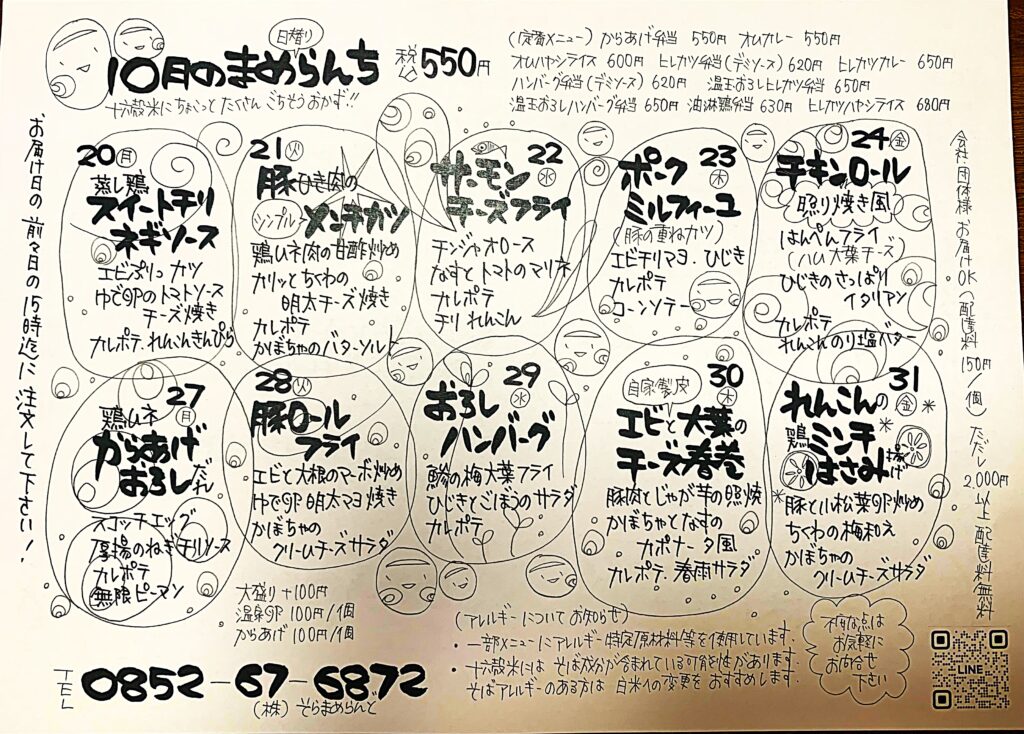 日替り
10月のまめらんち 税込 550円
十六穀米にちょっとたくさんごちそうおかず!!
(定番メニュー) からあげ弁当 550円 オムカレー 550円
オムハヤシライス 600円 ヒレカツ弁当(デミソース) 620円 ヒレカツカレー 650円
ハンバーグ弁当(デミソース) 620円 温玉おろしヒレカツ弁当 650円
温玉おろしハンバーグ弁当 650円 油淋鶏弁当 630円 ヒレカツハヤシライス 680円
お届け日の前々日の15時迄に注文して下さい!
20(月)
蒸し鶏
スイートチリ
ネギソース
エビぷりっカツ
ゆで卵のトマトソース
チーズ焼き
カレポテ.れんこんきんぴら
21(火)
豚ひき肉の
シンプル メンチカツ
鶏ムネ肉の甘酢炒め
カリッとちくわの
明太チーズ焼き
カレポテ
かぼちゃのバターソルト
22(水)
サーモン
チーズフライ
チンジャオロース
なすとトマトのマリネ
カレポテ
チリれんこん
23(木)
ポーク
ミルフィーユ
(豚の重ねカツ)
エビチリマヨ.ひじき
カレポテ
コーンソテー
24(金)
チキンロール
照り焼き風
はんぺんフライ
(ハム大葉チーズ)
ひじきのさっぱり
イタリアン
カレポテ
れんこんのり塩バター
27(月)
鶏ムネ
からあげ
おろしだれ
スコッチエッグ
厚揚のねぎチリソース
カレポテ
無限ピーマン
28(火)
豚ロール
フライ
エビと大根のマーボ炒め
ゆで卵明太マヨ焼き
かぼちゃの
クリームチーズサラダ
29(水)
おろし
ハンバーグ
鯵の梅大葉フライ
ひじきとごぼうのサラダ
カレポテ
30(木)
自家製皮
エビと大葉の
チーズ春巻
豚肉とじゃが芋の照焼
かぼちゃとなすの
カポナータ風
カレポテ.春雨サラダ
31(金)
れんこんの
鶏ミンチ
はさみ揚げ
豚と小松菜の卵炒め
ちくわの梅和え
かぼちゃの
クリームチーズサラダ
会社団体様お届けOK(配達料150円/個)ただし2,000円以上配達料無料
大盛り+100円
温泉卵 100円/個
からあげ 100円/個
(アレルギーについてお知らせ)
・一部メニューにアレルギー特定原材料等を使用しています.
・十六穀米にはそば成分が含まれている可能性があります.
そばアレルギーのある方は白米への変更をおすすめします.
不明な点は
お気軽に
お問合せ
下さい
LINE
TEL 0852-67-6872
(株)そらまめらんど